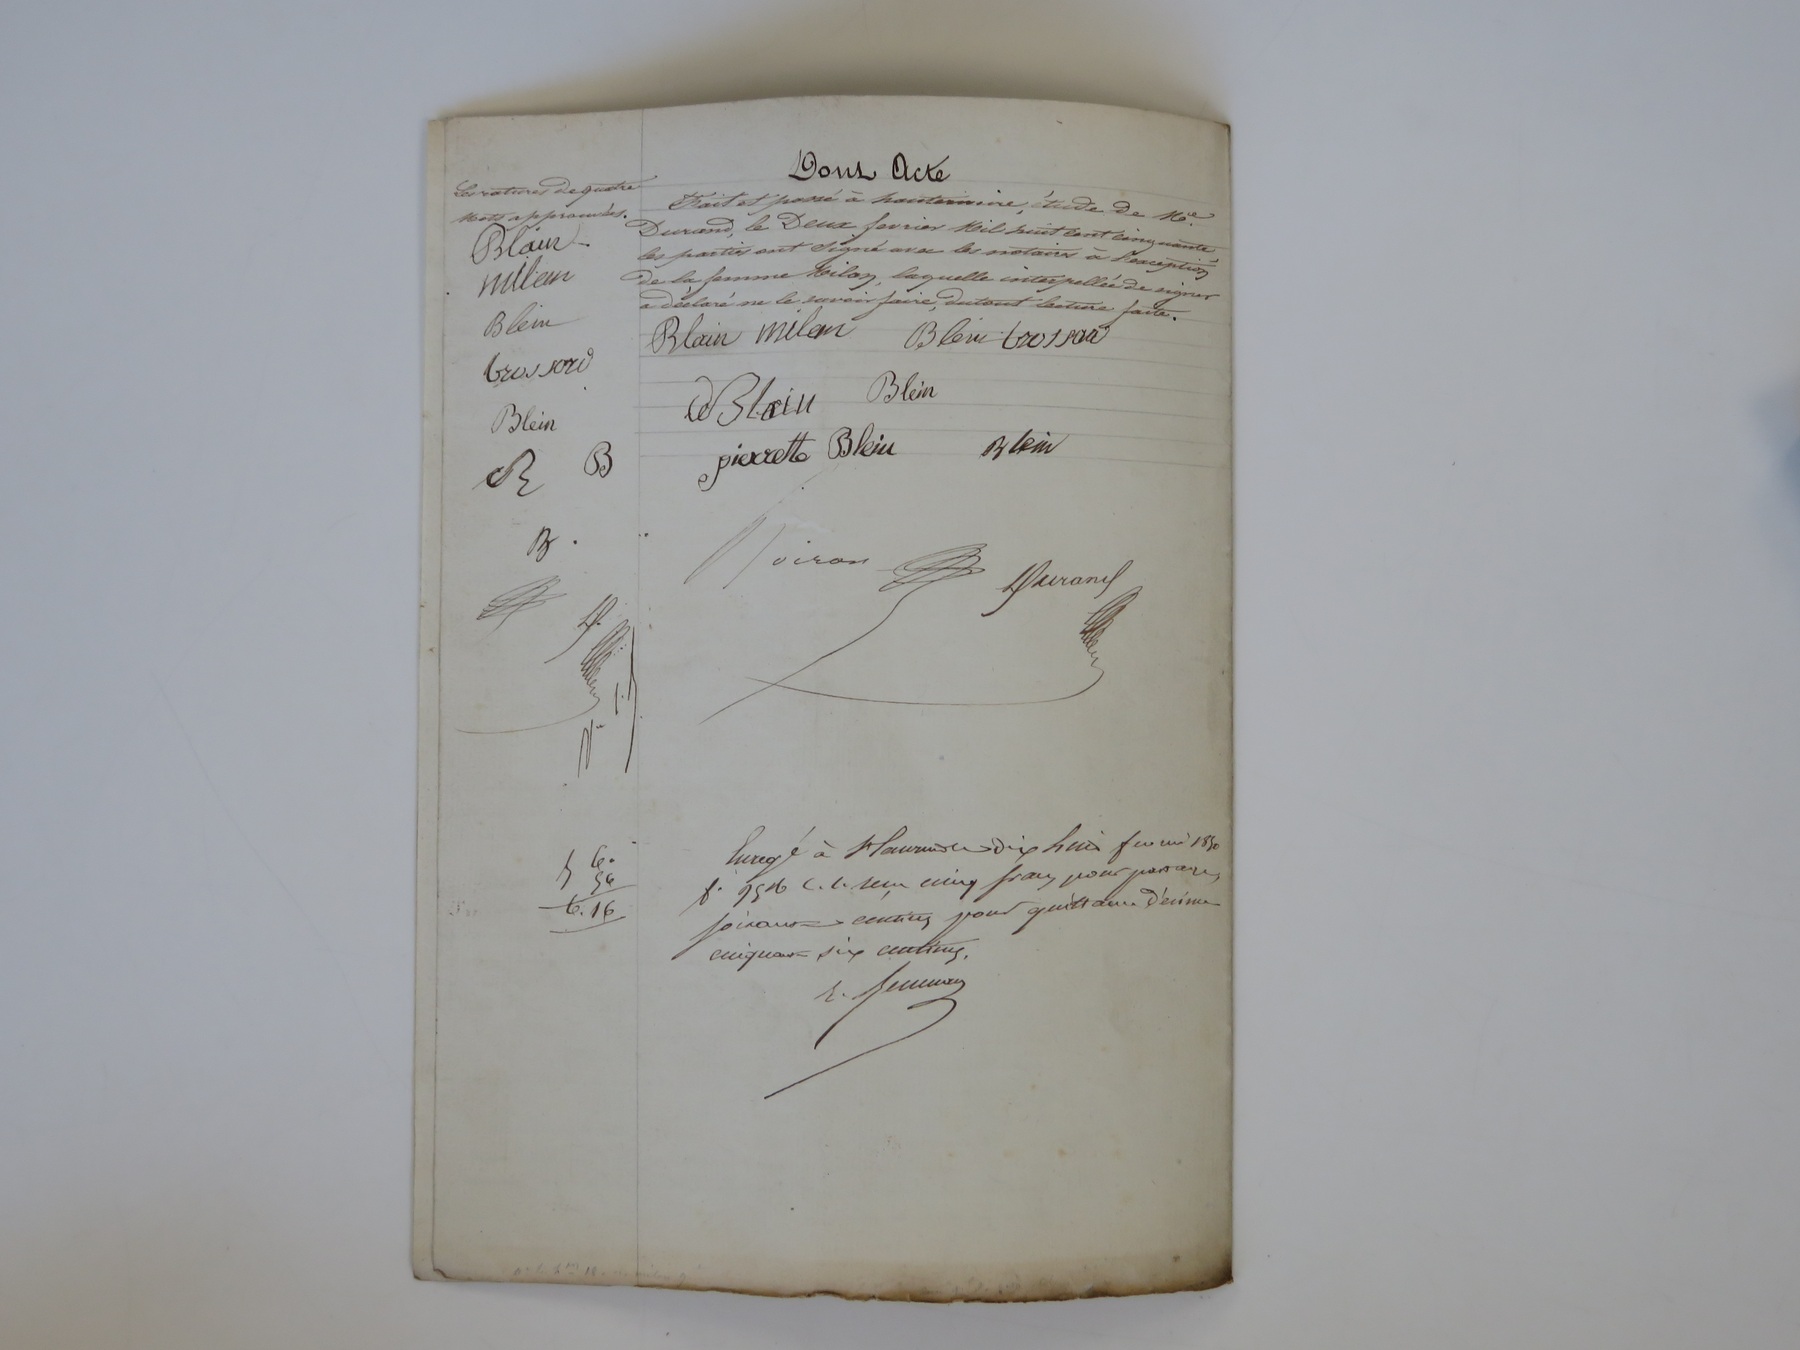 Dont Acte
Les ratures de quatre
mots approuvées.
Blain
milan
Blein
trossard
Blein
B
B
Fait et passé à hauterivoire, étude de Me
Durand, le Deux fevrier Mil huit cent cinquante
les parties ont signé avec les notaires à l'exception
de la femme Milan, laquelle interpellée de signer
a déclaré ne le savoir faire, du tout lecture faite.
Blain milan Blein trossard
Blain Blein
pierrette Blein Blein
Noiron Durand
D.
6.
56
6.16
Enregé à St Laurent le dix huit fevrier 1850
fo 95 cinq francs pour
soixante centimes pour quittance Décime
cinquante six centimes.